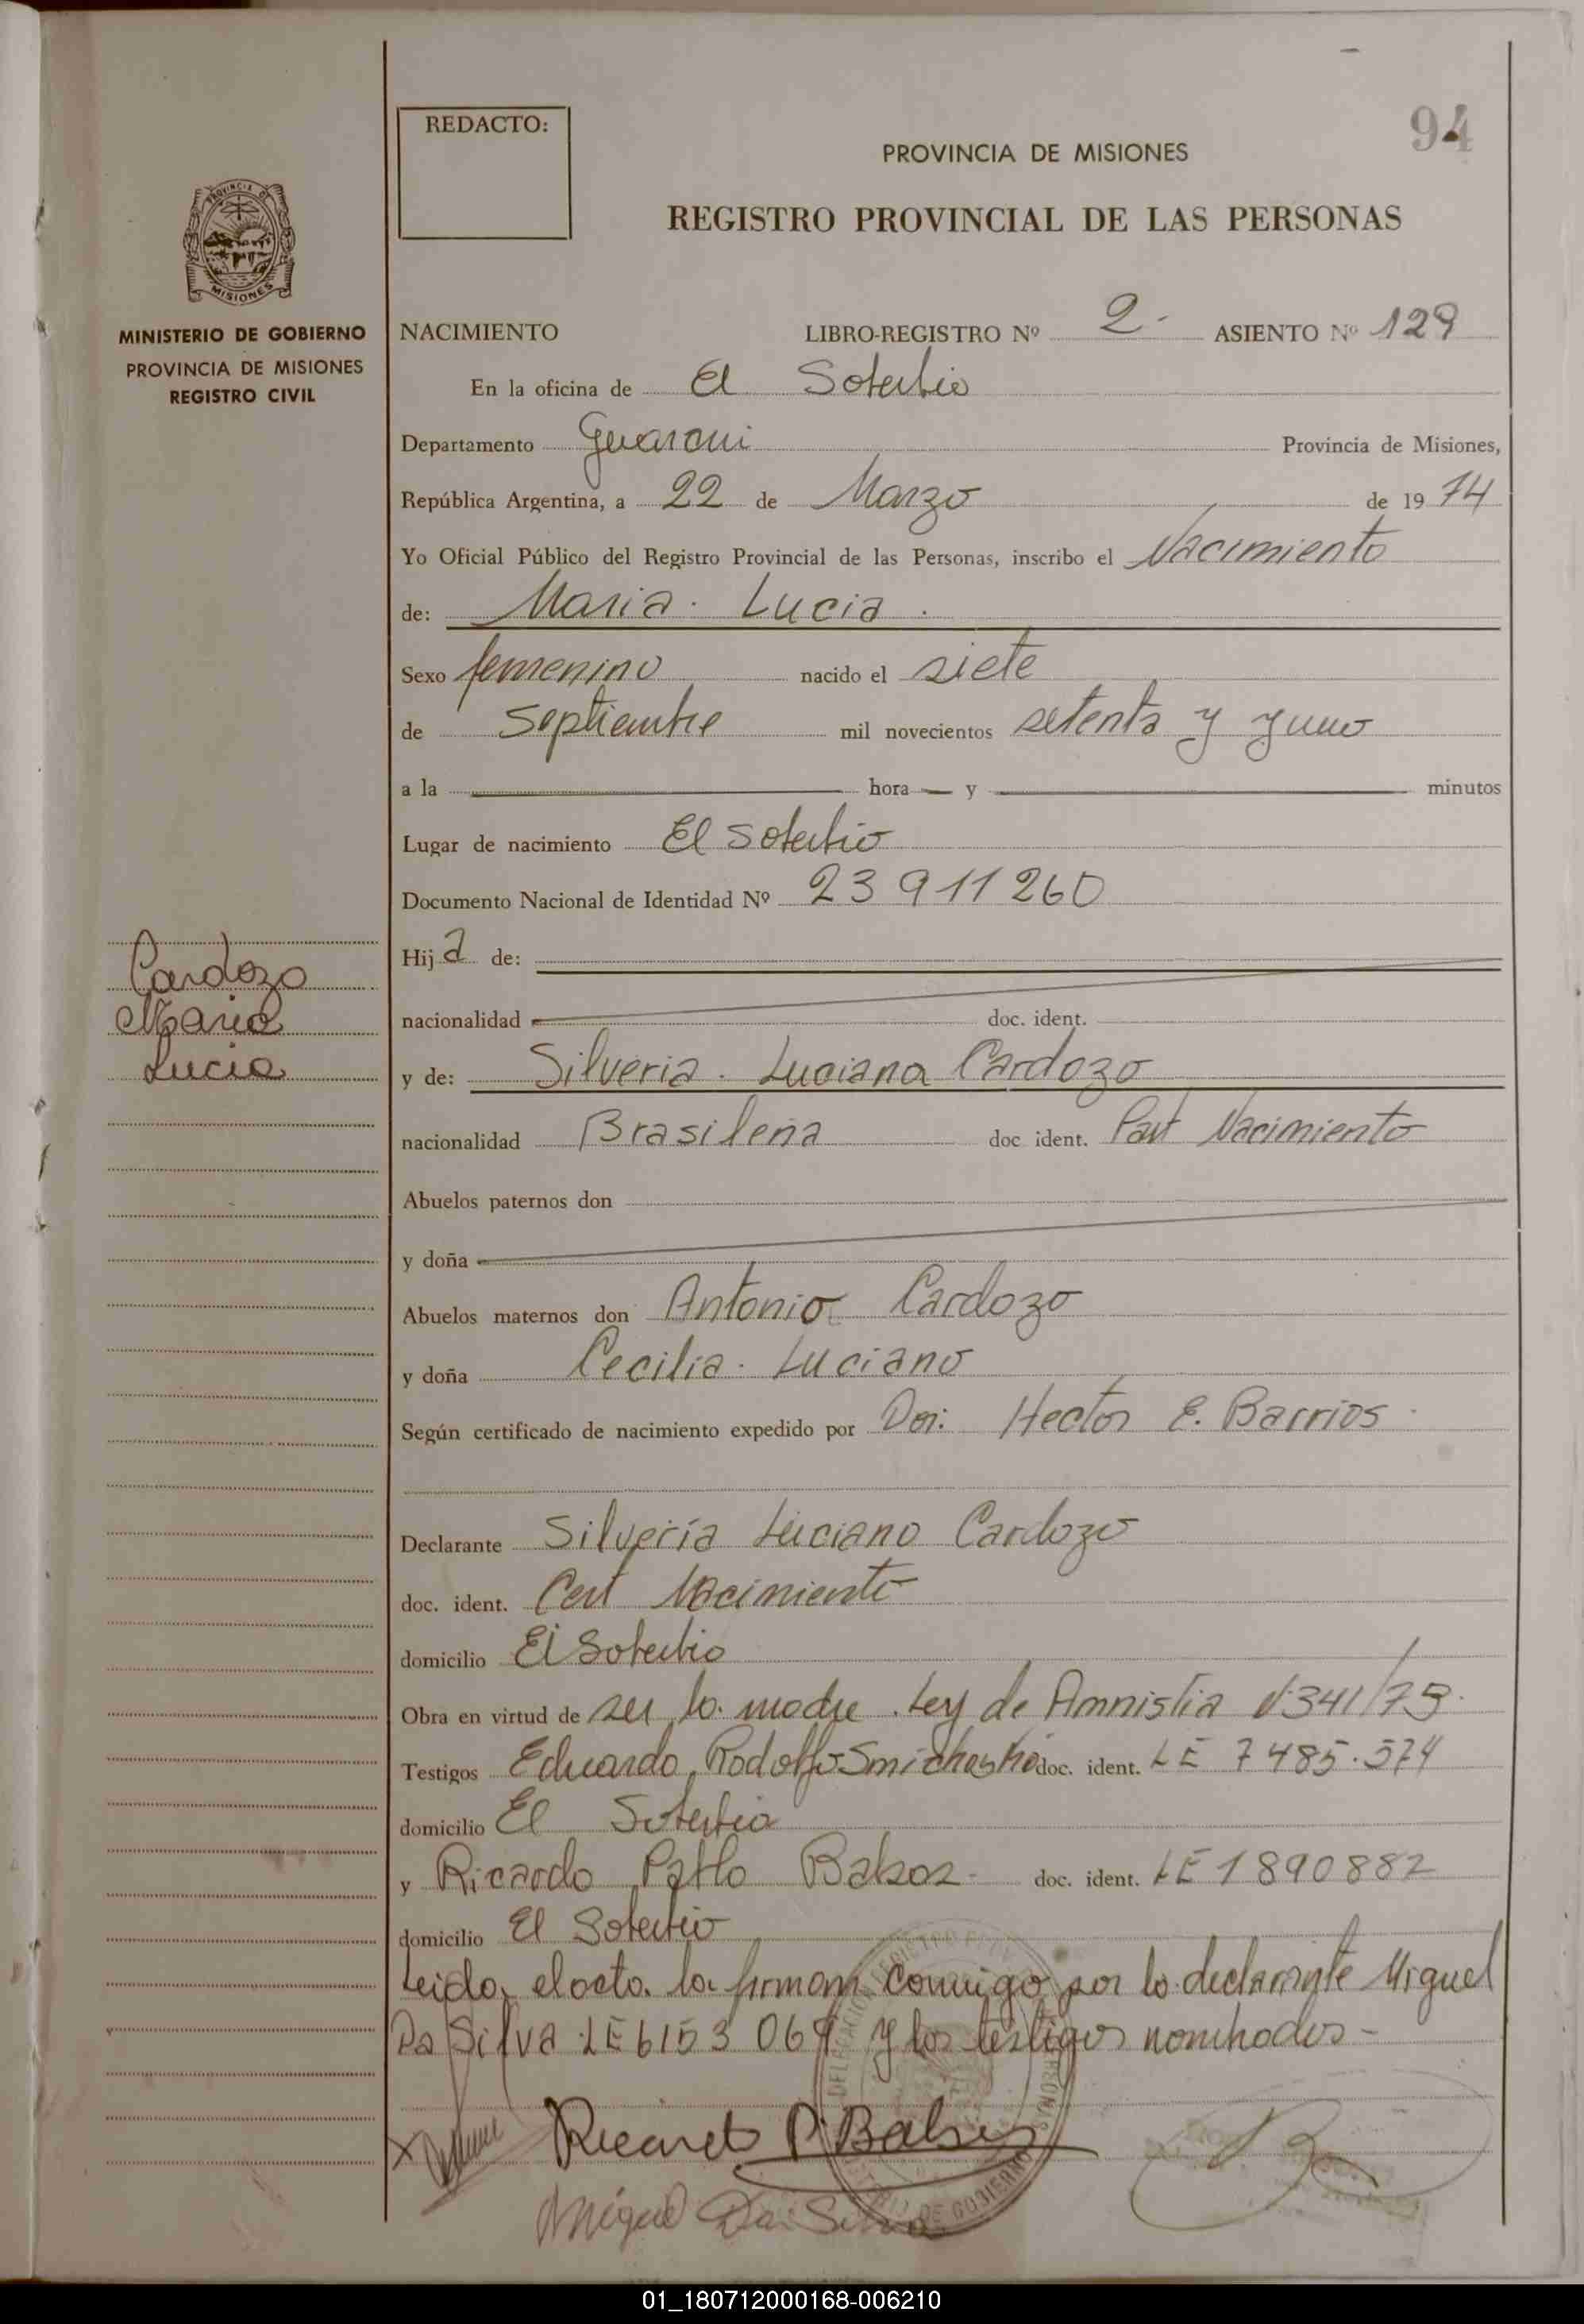 94
REDACTO:
PROVINCIA DE MISIONES
REGISTRO PROVINCIAL DE LAS PERSONAS
PROVINCIA DE
MISIONES
MINISTERIO DE GOBIERNO
PROVINCIA DE MISIONES
REGISTRO CIVIL
NACIMIENTO LIBRO-REGISTRO Nº 2- ASIENTO Nº 129
En la oficina de El Soberbio
Departamento Guarani Provincia de Misiones,
República Argentina, a 22 de Marzo de 19 74
Yo Oficial Público del Registro Provincial de las Personas, inscribo el Nacimiento
de: Maria. Lucia.
Sexo femenino nacido el siete
de Septiembre mil novecientos setenta y y uno
a la hora y minutos
Lugar de nacimiento El Soberbio
Documento Nacional de Identidad Nº 23 911 260
Hija de:
nacionalidad doc. ident.
Cardozo
Maria
Lucia
y de: Silveria. Luciana Cardozo
nacionalidad Brasileña doc ident. Part Nacimiento
Abuelos paternos don
y doña
Abuelos maternos don Antonio Cardozo
y doña Cecilia. Luciano
Según certificado de nacimiento expedido por Dor: Hector E. Barrios.
Declarante Silveria Luciano Cardozo
doc. ident. Cert Nacimiento
domicilio El Soberbio
Obra en virtud de ser la madre. Ley de Amnistia Nº341/73.
Testigos Eduardo Rodolfo doc. ident. LE 7485.574
domicilio El Soberbio
y Ricardo Pablo doc. ident. LE 1890882
domicilio El Soberbio
Leida el acta. la firman conmigo por la declarante Miguel
Da Silva LE 6153 069 y los testigos nombrados-
Ricardo P.
Miguel Da Silva
01_180712000168-006210